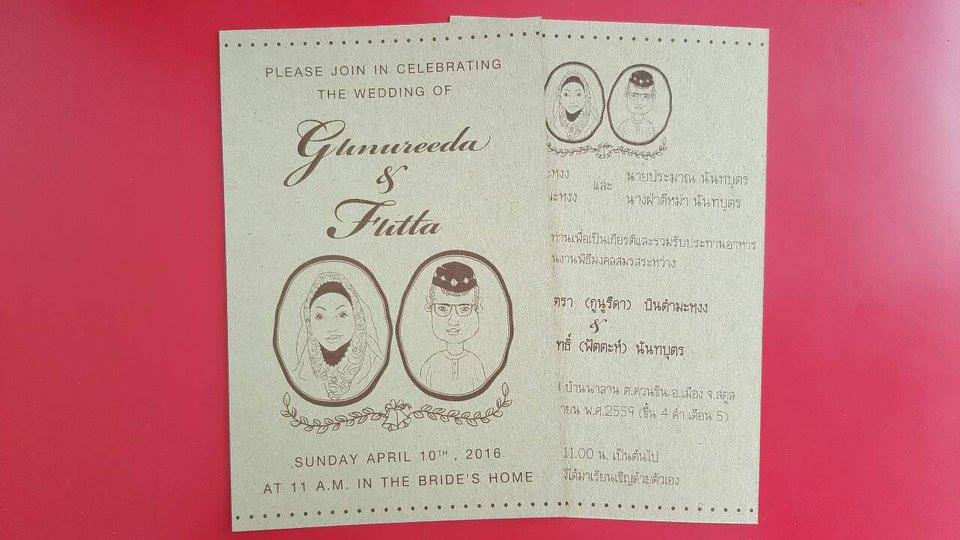 PLEASE JOIN IN CELEBRATING
THE WEDDING OF
Gunureeda
&
Futta
SUNDAY APRIL 10TH , 2016
AT 11 A.M. IN THE BRIDE'S HOME
และ นายประมาณ นันทบุตร
นางฝาตีหม๊ะ นันทบุตร
ท่านเพื่อเป็นเกียรติและร่วมรับประทานอาหาร
นงานพิธีมงคลสมรสระหว่าง
ตรา (กูนูรีดา) บินตำมะหงง
&
ทธิ์ (ฟัตตะห์) นันทบุตร
บ้านนาลาน ต.ควนขัน อ.เมือง จ.สตูล
ายน พ.ศ.2559 (ขึ้น 4 ค่ำ เดือน 5)
11.00 น. เป็นต้นไป
ได้มาเรียนเชิญด้วยตัวเอง